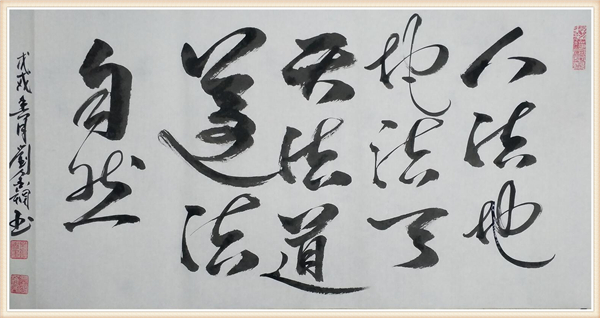 人法地
地法天
天法道
道法
自然
戊戌月劉书